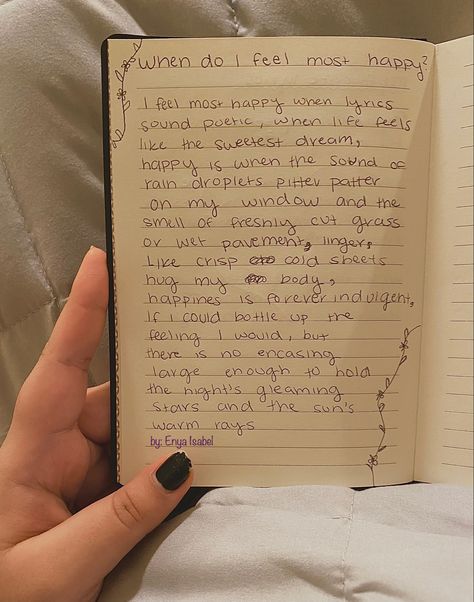 When do I feel most happy?
I feel most happy when lyrics
sound poetic, when life feels
like the sweetest dream,
happy is when the sound of
rain droplets pitter patter
on my window and the
smell of freshly cut grass
or wet pavement, linger,
Like crisp cold sheets
hug my body,
happines is forever indulgent,
If I could bottle up the
feeling I would, but
there is no encasing
large enough to hold
the night's gleaming
stars and the sun's
warm rays
by: Enya Isabel